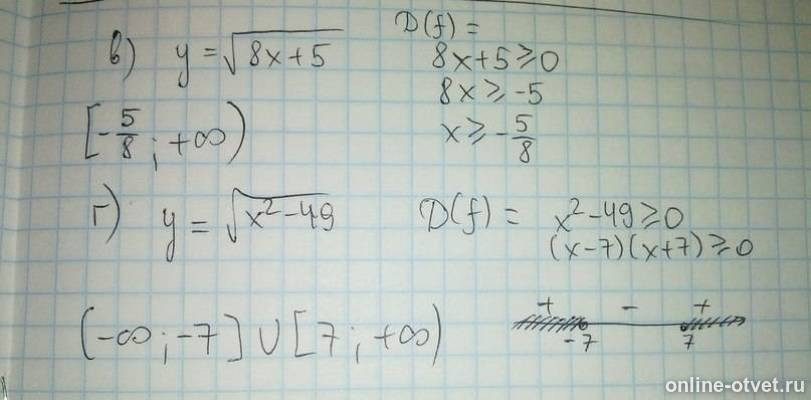 в) y = √(8x+5) D(f) =
8x+5 ≥ 0
8x ≥ -5
[-5/8; +∞) x ≥ -5/8
г) y = √(x²-49) D(f) = x²-49 ≥ 0
(x-7)(x+7) ≥ 0
+ - +
-7 7
(-∞; -7] ∪ [7; +∞)
online-otvet.ru